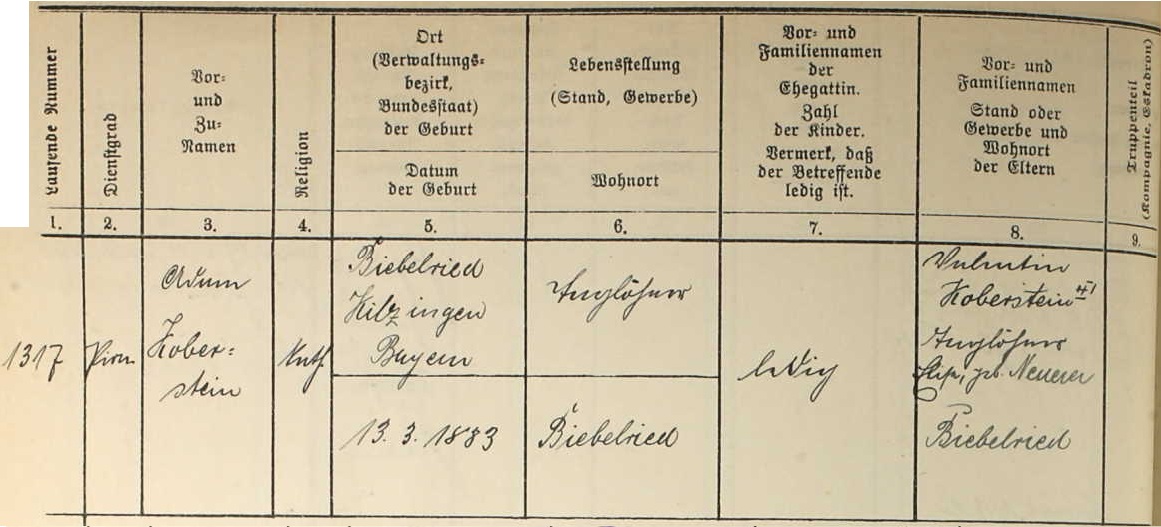 Laufende Nummer
Dienstgrad
Vor-
und
Zu-
Namen
Religion
Ort
(Verwaltungs-
bezirk,
Bundesstaat)
der Geburt
Datum
der Geburt
Lebensstellung
(Stand, Gewerbe)
Wohnort
Vor- und
Familiennamen
der
Ehegattin.
Zahl
der Kinder.
Vermerk, daß
der Betreffende
ledig ist.
Vor- und
Familiennamen
Stand oder
Gewerbe und
Wohnort
der Eltern
Truppenteil
(Kompagnie, Eskadron)
1. 2. 3. 4. 5. 6. 7. 8. 9.
1317
Pion
Adam
Kober=
stein
Kath
Biebelried
Kitzingen
Bayern
13. 3. 1883
Taglöhner
Biebelried
ledig
Valentin
Koberstein
Taglöhner
geb. Neuerer
Biebelried